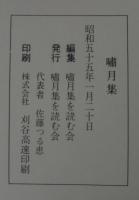 嘯月集
昭和五十五年一月二十日
編集　嘯月集を読む会
発行　嘯月集を読む会
代表者　佐藤つる恵
印刷　株式会社　刈谷高速印刷